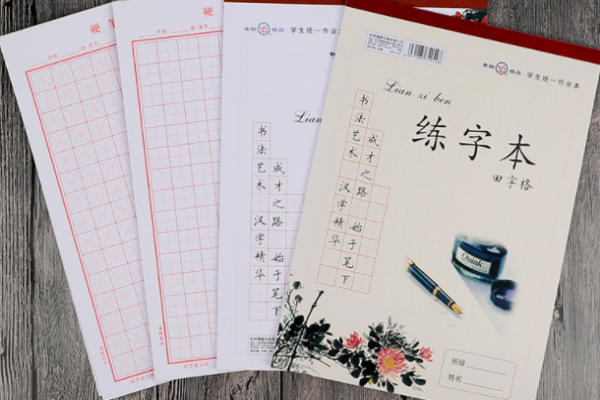 硬
硬
学生统一作业本
Lian
书法艺术 汉学精华
成才之路 始于笔下
学生统一作业本
Lian xi ben
练字本
田字格
书法艺术 汉学精华
成才之路 始于笔下
Quink
班级
姓名